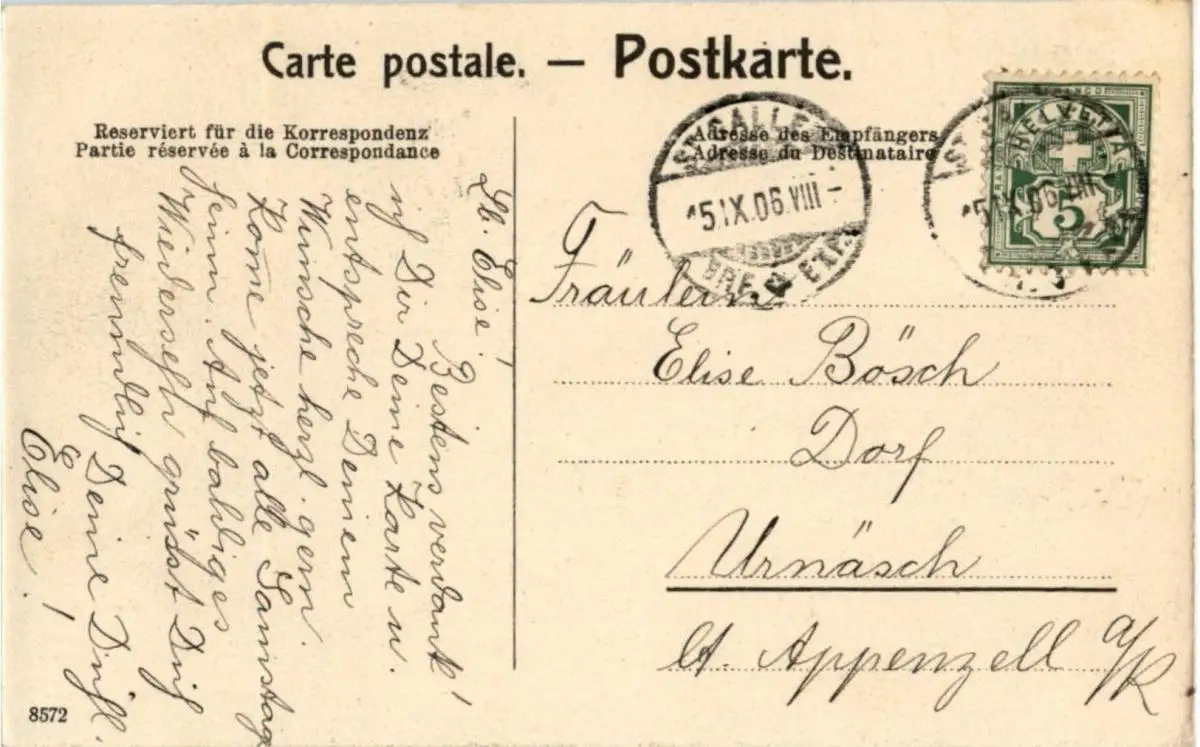 Carte postale. — Postkarte.
Reserviert für die Korrespondenz
Partie réservée à la Correspondance
Adresse des Empfängers
Adresse du Destinataire
ST. GALLEN
15.IX.06.VIII-
FRANCO
HELVETIA
5
Fräulein
Elise Bösch
Dorf
Urnäsch
Ct. Appenzell a/R
Lb. Elise!
Bestens verdank!
ich Dir Deine Karte u.
entspreche Deinem
Wunsche herzl. gern.
Komme jetzt alle Samstag
heim. Auf baldiges
Wiedersehn grüsst Dich
freundlich Deine
Elise!
8572